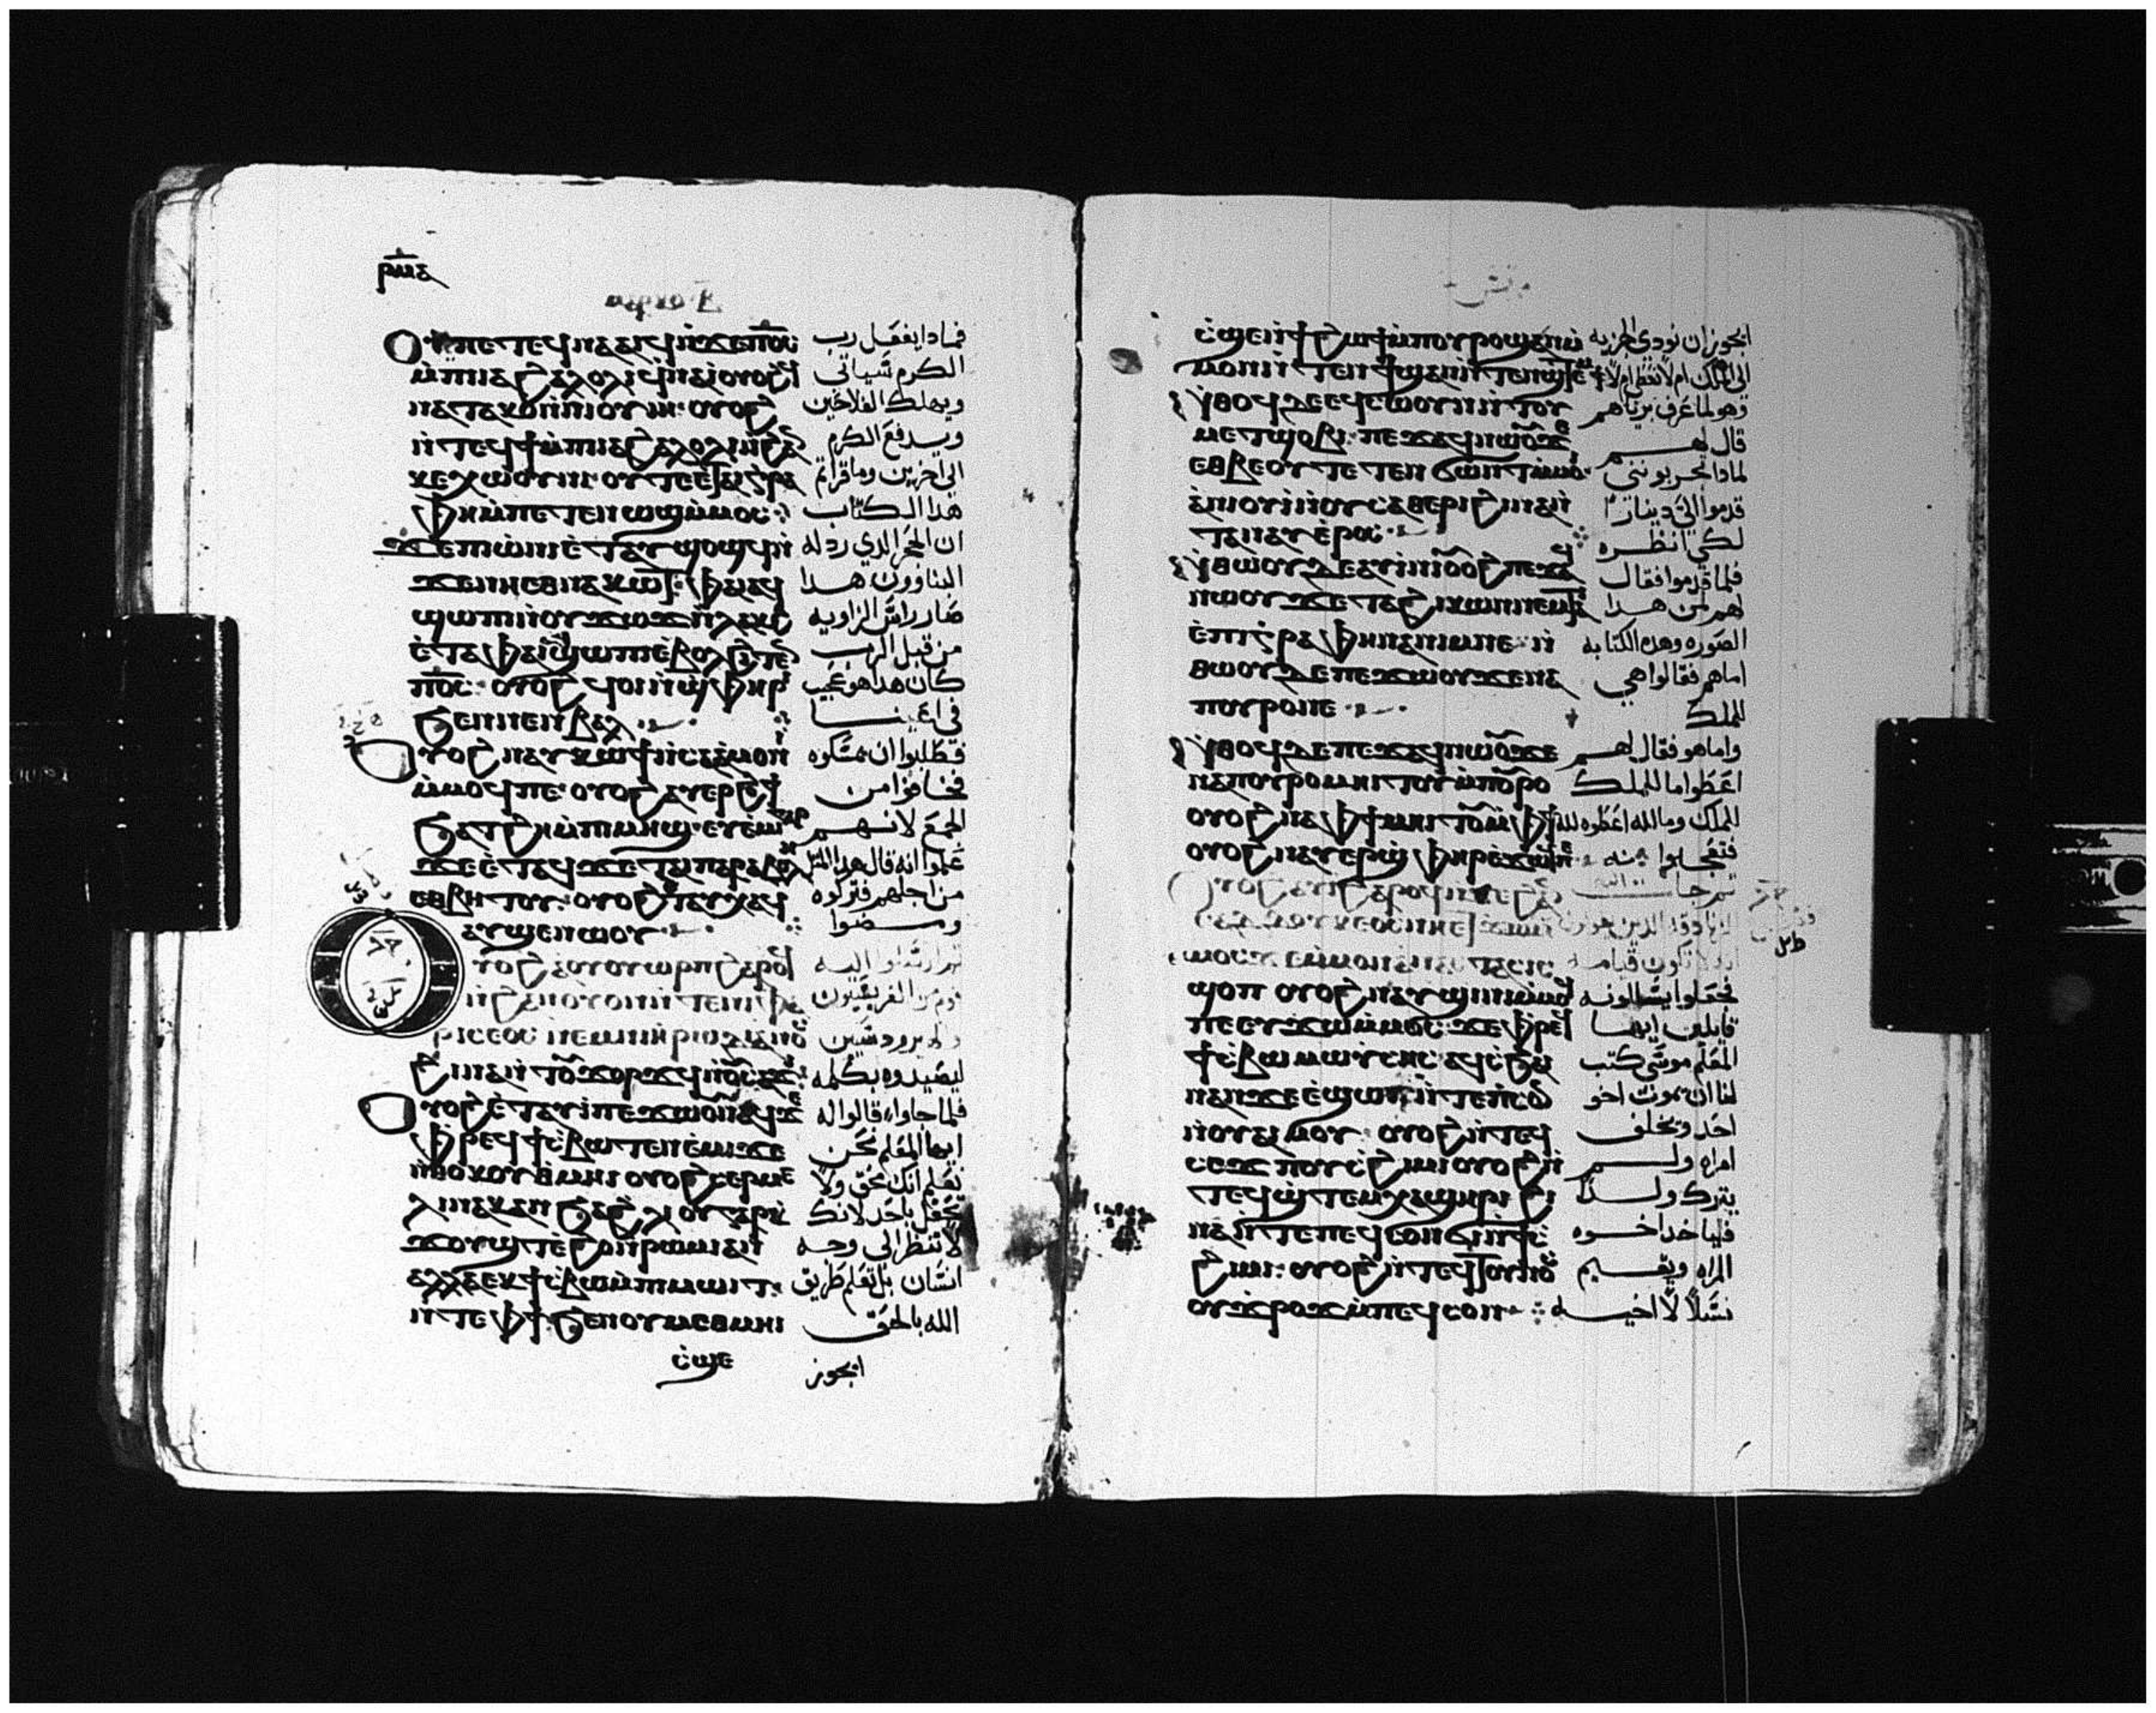 ⲣⲙⲇ
ⲟⲩ ⲡⲉⲧⲉϥⲛⲁⲁⲓϥ ⲛ̀ϫⲉⲡⲟ̅ⲥ̅ فمادا يفعل رب
ⲙ̀ⲡⲓⲁϩⲁⲗⲟⲗⲓ ϥⲛⲁⲓ̀ ⲟⲩⲟϩ الكرم سياتي
ⲛⲁⲧⲁⲕⲟ ⲛ̀ⲛⲓⲟⲩⲓⲏ· ⲟⲩⲟϩ ويهلك الفلاحين
ⲛ̀ⲧⲉϥϯ ⲙ̀ⲡⲓⲁϩⲁⲗⲟⲗⲓ ⲛ̀ϩⲁ ويدفع الكرم
ⲕⲉⲭⲱⲟⲩⲛⲓ· ⲟⲩⲧⲉ ⲧⲁⲓⲅⲣⲁ الى اخرين وما قراتم
ⲫⲏ ⲙ̀ⲡⲉⲧⲉⲛⲱϣ ⲙ̀ⲙⲟⲥ· هدا الكتاب
ϫⲉⲡⲓⲱ̀ⲛⲓ ⲉ̀ⲧⲁⲩϣⲟϣϥ ⲛ̀ ان الحجر الدي ردله
ϫⲉⲛⲏⲉⲑⲛⲁⲕⲱϯ· ⲫⲁⲓ ⲁϥ البناوون هدا
ϣⲱⲡⲓ ⲛ̀ⲟⲩϫⲱϫ ⲛ̀ⲗⲁⲕϩ صار راس الزاويه
ⲉ̀ⲧⲁ ⲫⲁⲓ ϣⲱⲡⲓ ⲉⲃⲟⲗ ϩⲓⲧⲉ من قبل الرب
ⲡⲟ̅ⲥ̅· ⲟⲩⲟϩ ϥⲟⲓ ⲛ̀ϣⲫⲏⲣⲓ كان هدا هو عجيب
ϧⲉⲛ ⲛⲉⲛⲃⲁⲗ في اعيننا
ⲟⲩⲟϩ ⲛⲁⲩⲕⲱϯ ⲛ̀ⲥⲁⲁ̀ⲙⲟⲛⲓ فطلبوا ان يمسكوه
ⲙ̀ⲙⲟϥ ⲡⲉ· ⲟⲩⲟϩ ⲁⲩⲉⲣϩⲟϯ فخافوا من
ϧⲁⲧϩⲏ ⲙ̀ⲡⲓⲙⲏϣ· ⲉⲩⲉ̀ⲙⲓ ⲅⲁⲣ الجمع لانهم
ϫⲉ ⲉ̀ⲧⲁϥϫⲉ ⲧⲁⲓⲡⲁⲣⲁⲃⲟⲗⲏ علموا انه قال هدا المثل
ⲉⲑⲃⲏⲧⲟⲩ· ⲟⲩⲟϩ ⲉⲧⲁⲩⲭⲁϥ من اجلهم فتركوه
ⲁⲩϣⲉⲛⲱⲟⲩ ومضوا
ⲟⲩⲟϩ ⲁⲩⲟⲩⲱⲣⲡ ϩⲁⲣⲟϥ ثم ارسلوا اليه
ⲛ̀ϩⲁⲛⲟⲩⲟⲛ ⲛ̀ⲧⲉ ⲛⲓⲫⲁ قوم من الفريسيون
ⲣⲓⲥⲉⲟⲥ ⲛⲉⲙ ⲛⲓⲏⲣⲱⲇⲓⲁⲛⲟⲥ والهيرودسيين
ϩⲓⲛⲁ ⲛ̀ⲧⲟⲩϫⲟⲣϫϥ ⲛ̀ⲟⲩⲥⲁϫⲓ ليصيدوه بكلمه
ⲟⲩⲟϩ ⲉ̀ⲧⲁⲩⲓ̀ ⲡⲉϫⲱⲟⲩ ⲛⲁϥ ϫⲉ فلما جاوا قالوا له
ⲫⲣⲉϥϯⲥⲃⲱ ⲧⲉⲛⲉ̀ⲙⲓ ϫⲉ ايها المعلم نحن
ⲛ̀ⲑⲟⲕ ⲟⲩⲑⲙⲏⲓ ⲟⲩⲟϩ ⲥⲉⲣⲙⲉ نعلم انك محق ولا
ⲗⲓⲛⲁⲕ ⲁⲛ ϧⲁ ϩⲗⲓ ⲟⲩ ⲅⲁⲣ تحفل باحد لانك
ϫⲟⲩϣⲧ ⲉ̀ϩⲟ ⲛ̀ⲣⲱⲙⲓ ⲁⲛ لا تنظر الى وجه
ⲁⲗⲗⲁ ⲉⲕϯⲥⲃⲱ ⲙ̀ⲡⲓⲙⲱⲓⲧ انسان بل تعلم طريق
ⲛ̀ⲧⲉ ⲫϯ ϧⲉⲛ ⲟⲩⲙⲉⲑⲙⲏⲓ الله بالحق
ⲥ̀ϣⲉ ايجوز
ⲥ̀ϣⲉ ⲛ̀ϯϩⲱϯ ⲙ̀ⲡⲟⲩⲣⲟ ϣⲁⲛ ⲙ̀ ايجوز ان نودي الجزيه
ⲙⲟⲛ ⲛ̀ⲧⲉⲛϯ ϣⲁⲛ ⲛ̀ⲧⲉⲛϣⲧⲉⲙϯ الى الملك ام لا نعطي ام لا
ⲛ̀ⲑⲟϥ ⲇⲉ ⲉϥⲥⲱⲟⲩⲛ ⲛ̀ⲧⲟⲩ وهو لما عرف برياهم
ⲙⲉⲧϣⲟⲃⲓ· ⲡⲉϫⲁϥ ⲛⲱⲟⲩ ϫⲉ قال لهم
ⲉⲑⲃⲉⲟⲩ ⲧⲉⲧⲉⲛϭⲱⲛⲧ ⲙ̀ⲙⲟⲓ لمادا تجربونني
ⲁⲛⲓⲟⲩⲓ̀ ⲛⲟⲩⲥⲁⲑⲉⲣⲓ ϩⲓⲛⲁ ⲛ̀ قدموا الي دينارا
ⲧⲁⲛⲁⲩ ⲉ̀ⲣⲟⲥ لكي انظره
ⲛ̀ⲑⲱⲟⲩ ⲇⲉ ⲁⲩⲓⲛⲓ ⲟⲩⲟϩ ⲡⲉϫⲁϥ فلما قدموا فقال
ⲛⲱⲟⲩ ϫⲉ ⲧⲁϩⲓⲕⲱⲛ ⲛⲉⲙ ϯ لهم لمن هدا
ⲉ̀ⲡⲓⲅⲣⲁⲫⲏ ⲛⲁⲛⲓⲙ ⲛⲉ· ⲛ̀ الصوره وهده الكتابه
ⲑⲱⲟⲩ ⲇⲉ ⲡⲉϫⲱⲟⲩ ϫⲉ ⲛⲁ اما هم فقالوا هي
ⲡⲟⲩⲣⲟ ⲛⲉ للملك
ⲛ̀ⲑⲟϥ ⲇⲉ ⲡⲉϫⲁϥ ⲛⲱⲟⲩ ϫⲉ واما هو فقال لهم
ⲛⲁⲡⲟⲩⲣⲟ ⲙⲏⲓⲧⲟⲩ ⲙ̀ⲡⲟⲩⲣⲟ اعطوا ما للملك
ⲟⲩⲟϩ ⲛⲁ ⲫϯ ⲙⲏⲓⲧⲟⲩ ⲙ̀ⲫϯ للملك وما لله اعطوه لله
ⲟⲩⲟϩ ⲛⲁⲩⲉⲣϣⲫⲏⲣⲓ ⲉ̀ϫⲱϥ فتعجبوا منه
ⲟⲩⲟϩ ⲁⲩⲓ̀ ϩⲁⲣⲟϥ ⲛ̀ϫⲉ ϩⲁⲛ ثم جا اليه
ⲥⲁⲇⲇⲟⲩⲕⲉⲟⲥ ⲛⲏ ⲉⲧϫⲱ الزنادقه الدين يقولون
ⲙ̀ⲙⲟⲥ ϫⲉ ⲙ̀ⲙⲟⲛ ⲁ̀ⲛⲁⲥⲧⲁⲥⲓⲥ ان لا تكون قيامه
ϣⲟⲡ ⲟⲩⲟϩ ⲛⲁⲩϣⲓⲛⲓ ⲙ̀ⲙⲟϥ فجعلوا يسالونه
ⲡⲉ ⲉⲩϫⲱ ⲙ̀ⲙⲟⲥ· ϫⲉ ⲫⲣⲉϥ قايلين ايها
ϯⲥⲃⲱ ⲙⲱⲩ̀ⲥⲏⲥ ⲁϥⲥϧⲁⲓ المعلم موسى كتب
ⲛⲁⲛ ϫⲉ ⲉ̀ϣⲱⲡ ⲛ̀ⲧⲉ ⲡⲥⲟⲛ لنا ان يموت اخو
ⲛ̀ⲟⲩⲁⲓ ⲙⲟⲩ· ⲟⲩⲟϩ ⲛ̀ⲧⲉϥ احد ويخلف
ⲥⲉϫⲡ ⲟⲩⲥϩⲓⲙⲓ ⲟⲩⲟϩ ⲛ̀ امراه ولم
ⲧⲉϥϣⲧⲉⲙⲭⲁϣⲏⲣⲓ ϩⲓ يترك ولدا
ⲛⲁ ⲛ̀ⲧⲉ ⲡⲉϥⲥⲟⲛ ϭⲓ ⲛ̀ϯⲥ̀ فلياخد اخوه
ϩⲓⲙⲓ· ⲟⲩⲟϩ ⲛ̀ⲧⲉϥⲧⲟⲩⲛⲟⲥ المراه ويقيم
ⲟⲩϫⲣⲟϫ ⲙ̀ⲡⲉϥⲥⲟⲛ نسلا لاخيه